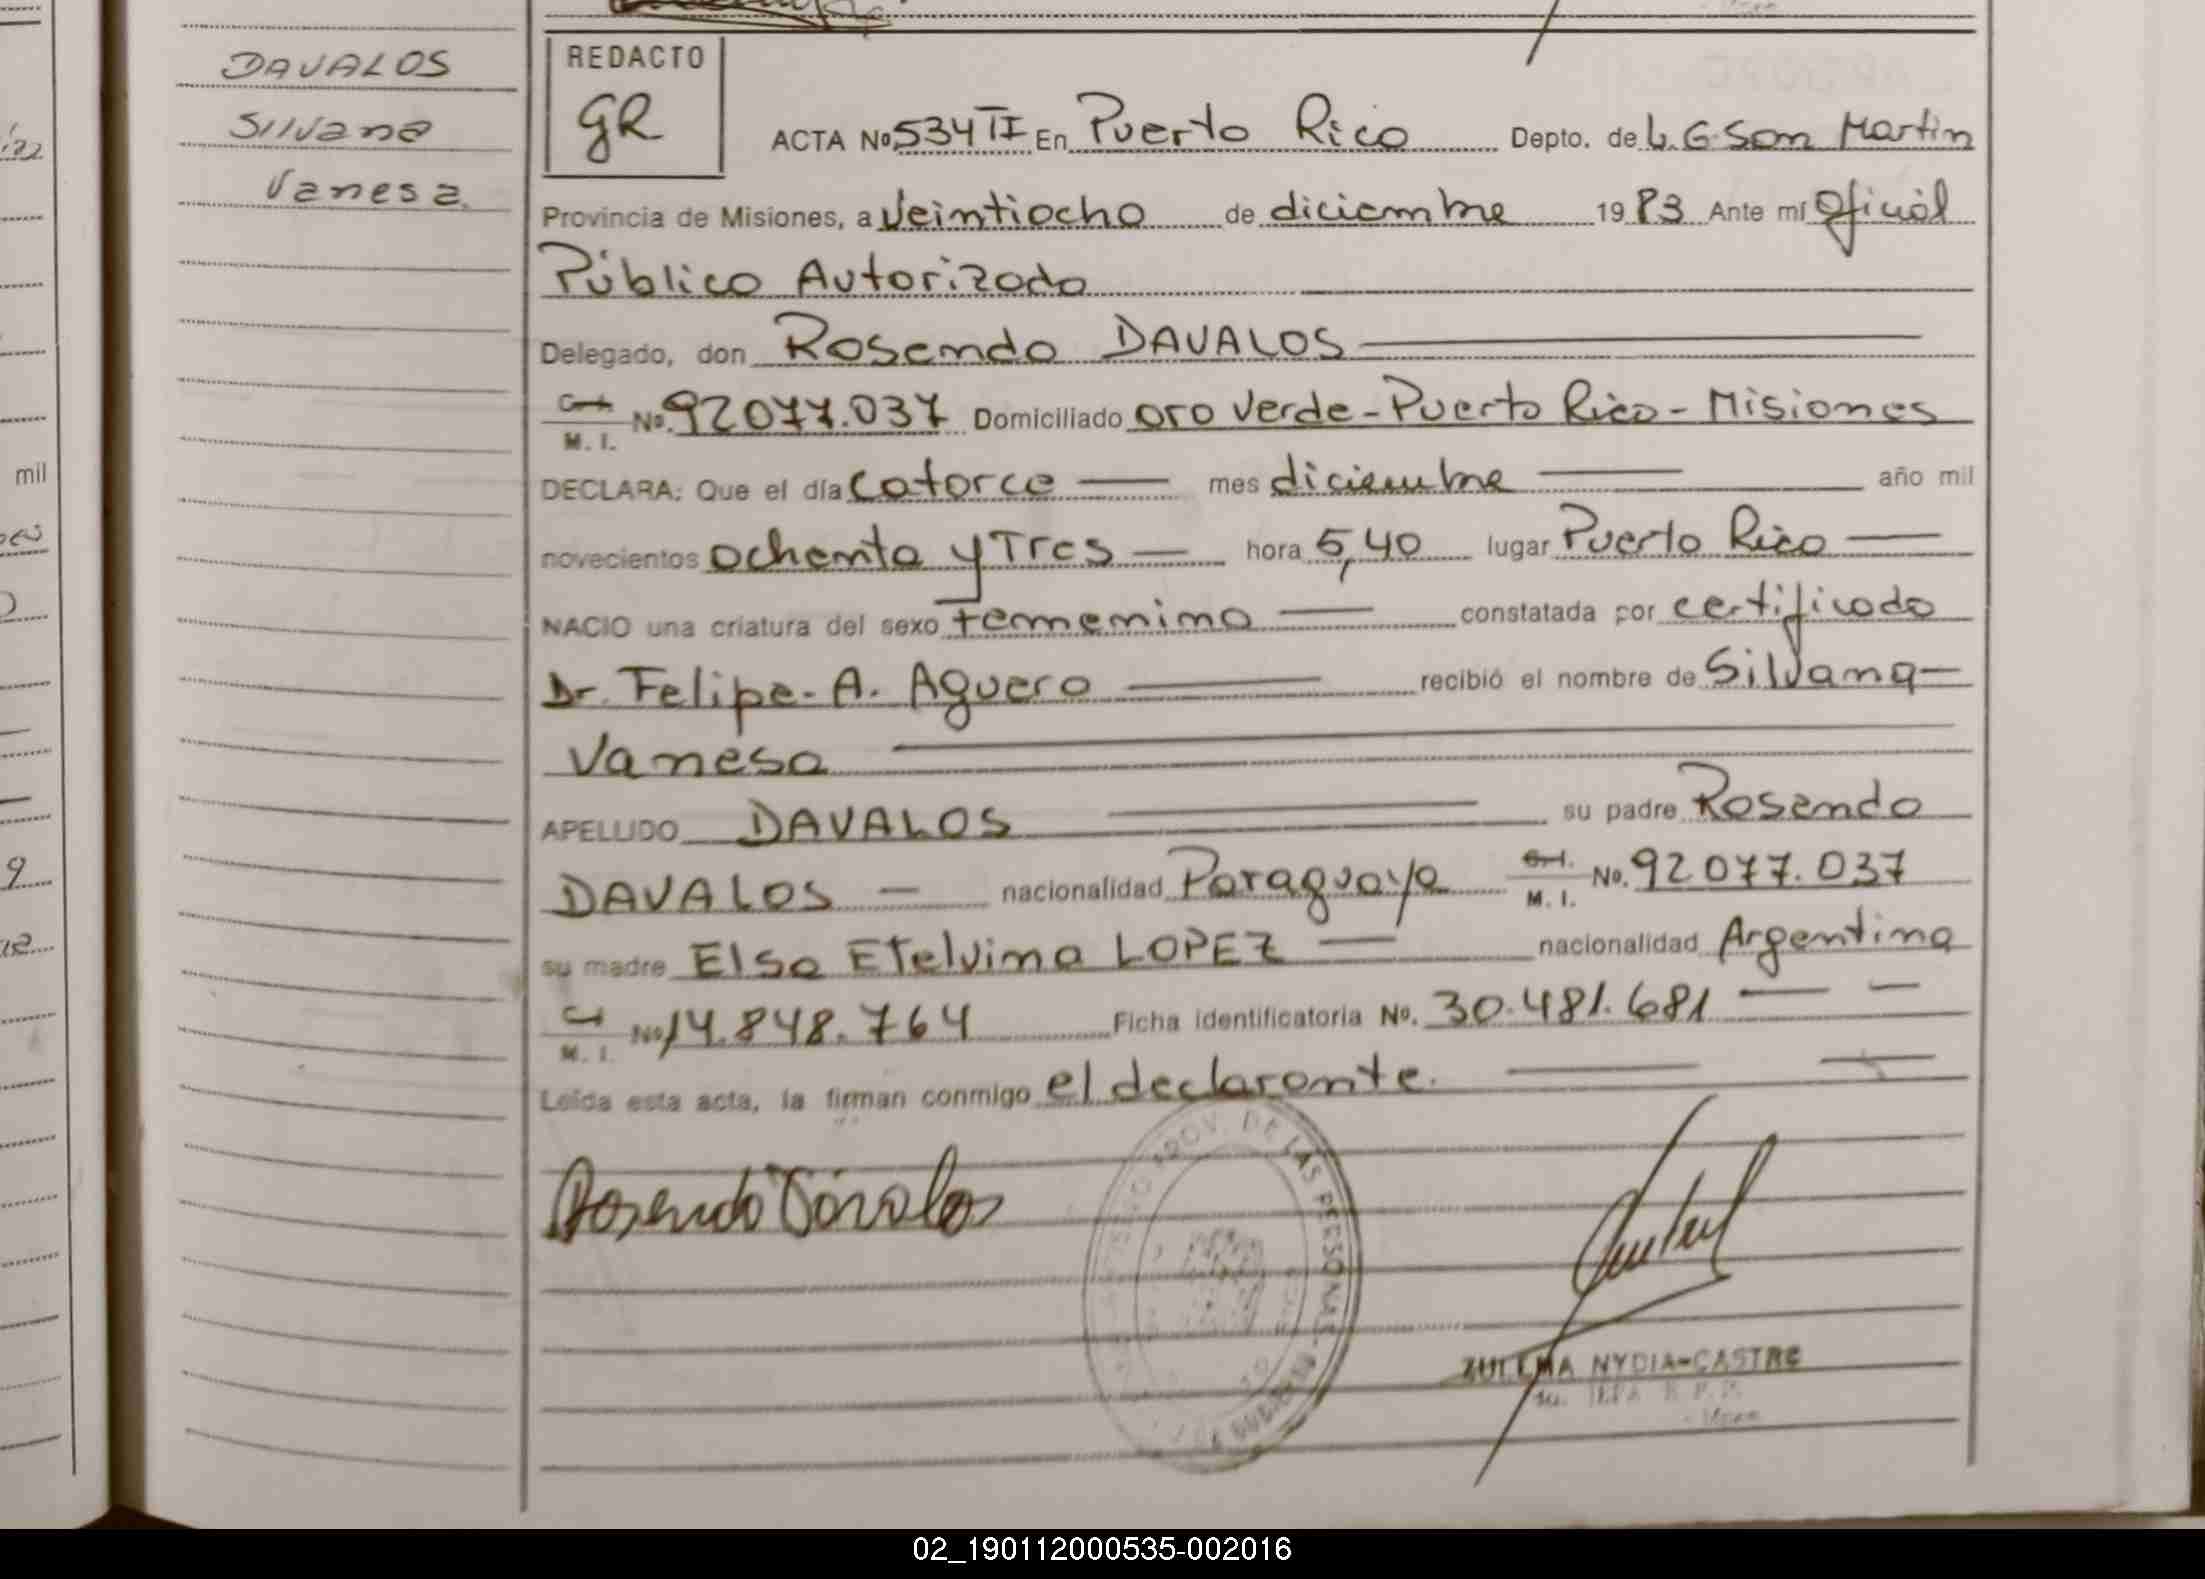 DAVALOS
Silvana
Vanesa
REDACTO
GR
ACTA No 534 II En Puerto Rico Depto. de L. G. San Martin
Provincia de Misiones, a veintiocho de diciembre 1983 Ante mí Oficial
Público Autorizado
Delegado, don Rosendo DAVALOS
M. I. No. 92077.037 Domiciliado Oro Verde - Puerto Rico - Misiones
DECLARA: Que el día catorce mes diciembre año mil
novecientos ochenta y Tres hora 5,40 lugar Puerto Rico
NACIO una criatura del sexo femenino constatada por certificado
Dr. Felipe - A. Aguero recibió el nombre de Silvana
Vanesa
APELLIDO DAVALOS su padre Rosendo
DAVALOS nacionalidad Paraguaya M. I. No. 92077.037
su madre Elsa Etelvina LOPEZ nacionalidad Argentina
M. I. No 14.848.764 Ficha identificatoria No. 30.481.681
Leída esta acta, la firman conmigo el declarante.
PROV. DE LAS PERSONAS
Rosendo Dávalos
ZULEMA NYDIA CASTRO
mil
02_190112000535-002016